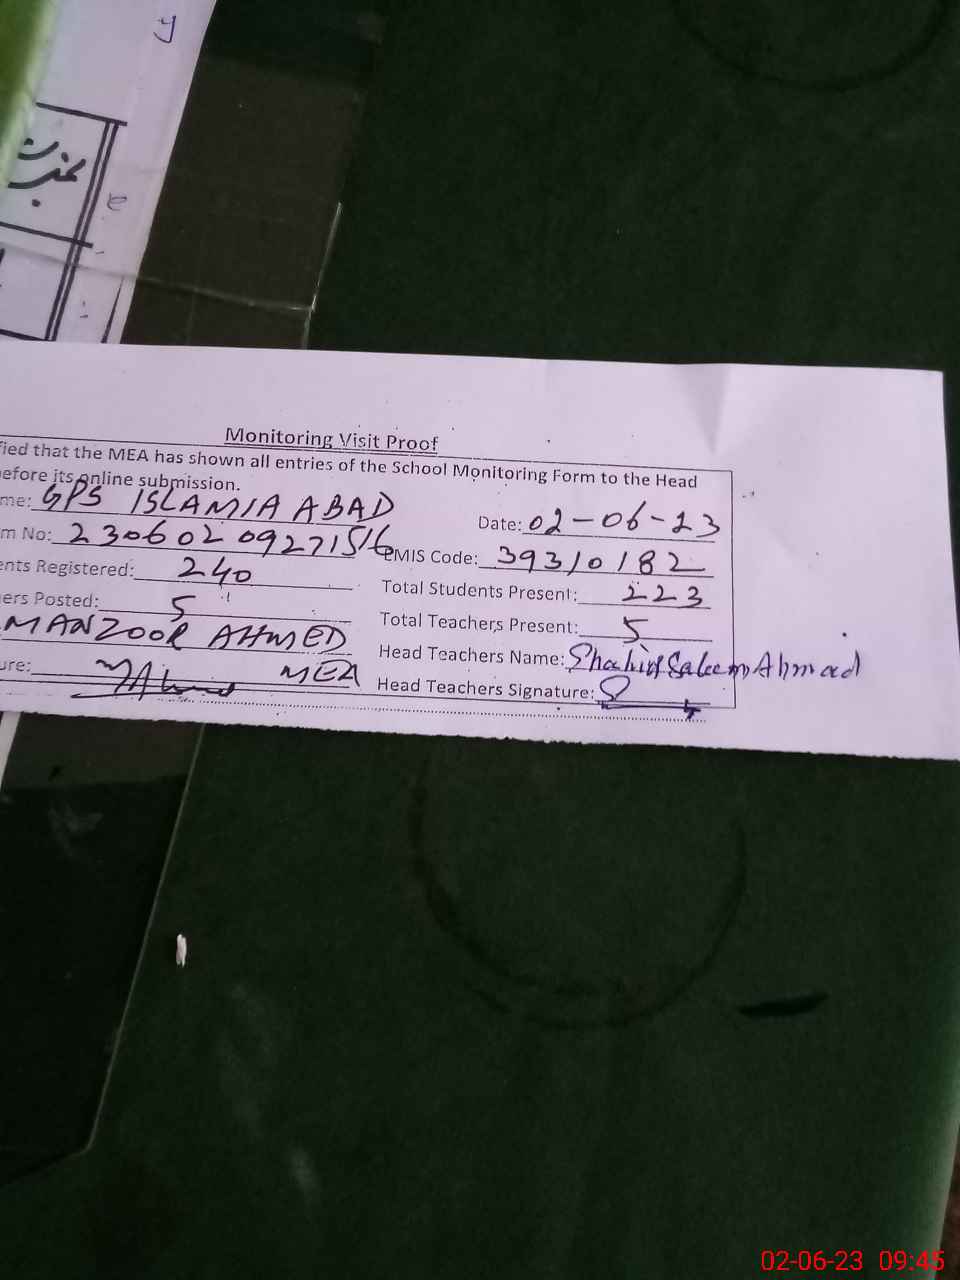 y
Monitoring Visit Proof
fied that the MEA has shown all entries of the School Monitoring Form to the Head
efore its online submission.
me: GPS ISLAMIA ABAD
Date: 02-06-23
m No: 23060209271516
EMIS Code: 39310182
ents Registered: 240
Total Students Present: 223
ers Posted: 5
Total Teachers Present: 5
MANZOOR AHMED
Head Teachers Name: Saleem Ahmad
ure: MEA
Head Teachers Signature:
02-06-23 09:45